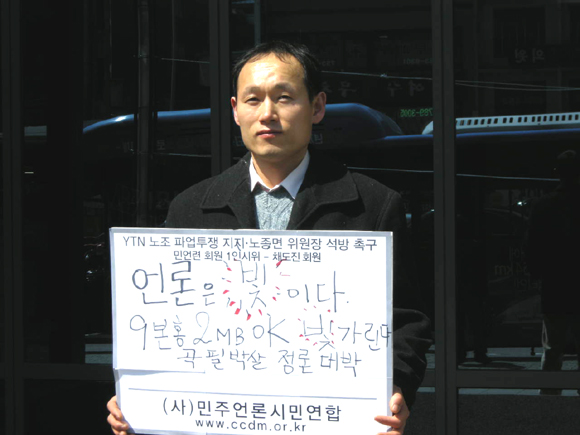 YTN 노조 파업투쟁 지지·노종면 위원장 석방 촉구
민언련 회원 1인시위 - 채도진 회원
언론은 빛이다.
9본홍 2MB OK 빛가린다
곡필박살 정론대박
(사)민주언론시민연합
www.ccdm.or.kr